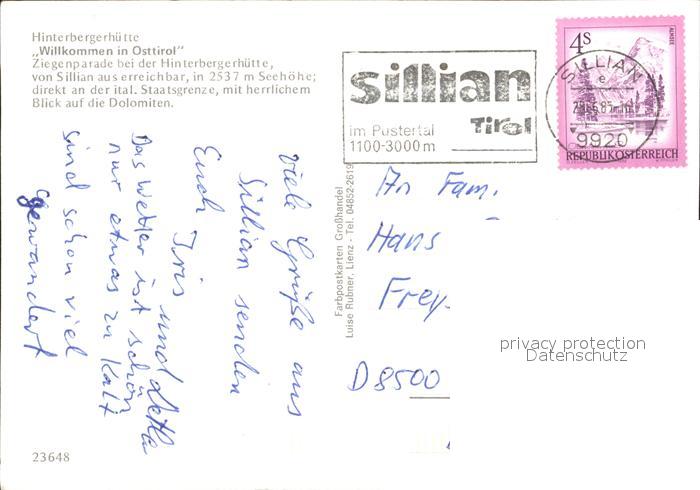 Hinterbergerhütte
„Willkommen in Osttirol"
Ziegenparade bei der Hinterbergerhütte,
von Sillian aus erreichbar, in 2537 m Seehöhe;
direkt an der ital. Staatsgrenze, mit herrlichem
Blick auf die Dolomiten.
sillian
Tirol
im Pustertal
1100-3000m
4S
ALMSEE
REPUBLIK ÖSTERREICH
SILLIAN
e
9920
Viele Grüße aus
Sillian senden
Euch Iris und
Das Wetter ist schön
nur etwas zu kalt
sind schon viel
gewandert
Farbpostkarten Großhandel
Luise Rubner, Lienz - Tel. 04852-2619
An Fam.
Hans
Frey.
D 8500
privacy protection
Datenschutz
23648